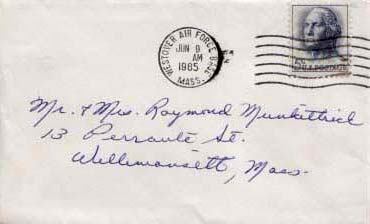 WESTOVER AIR FORCE BASE
JUN 9
AM
1965
MASS.
5¢ U.S. POSTAGE
Mr. & Mrs. Raymond Munkittrick
13 Perrault St.
Willimansett, Mass.